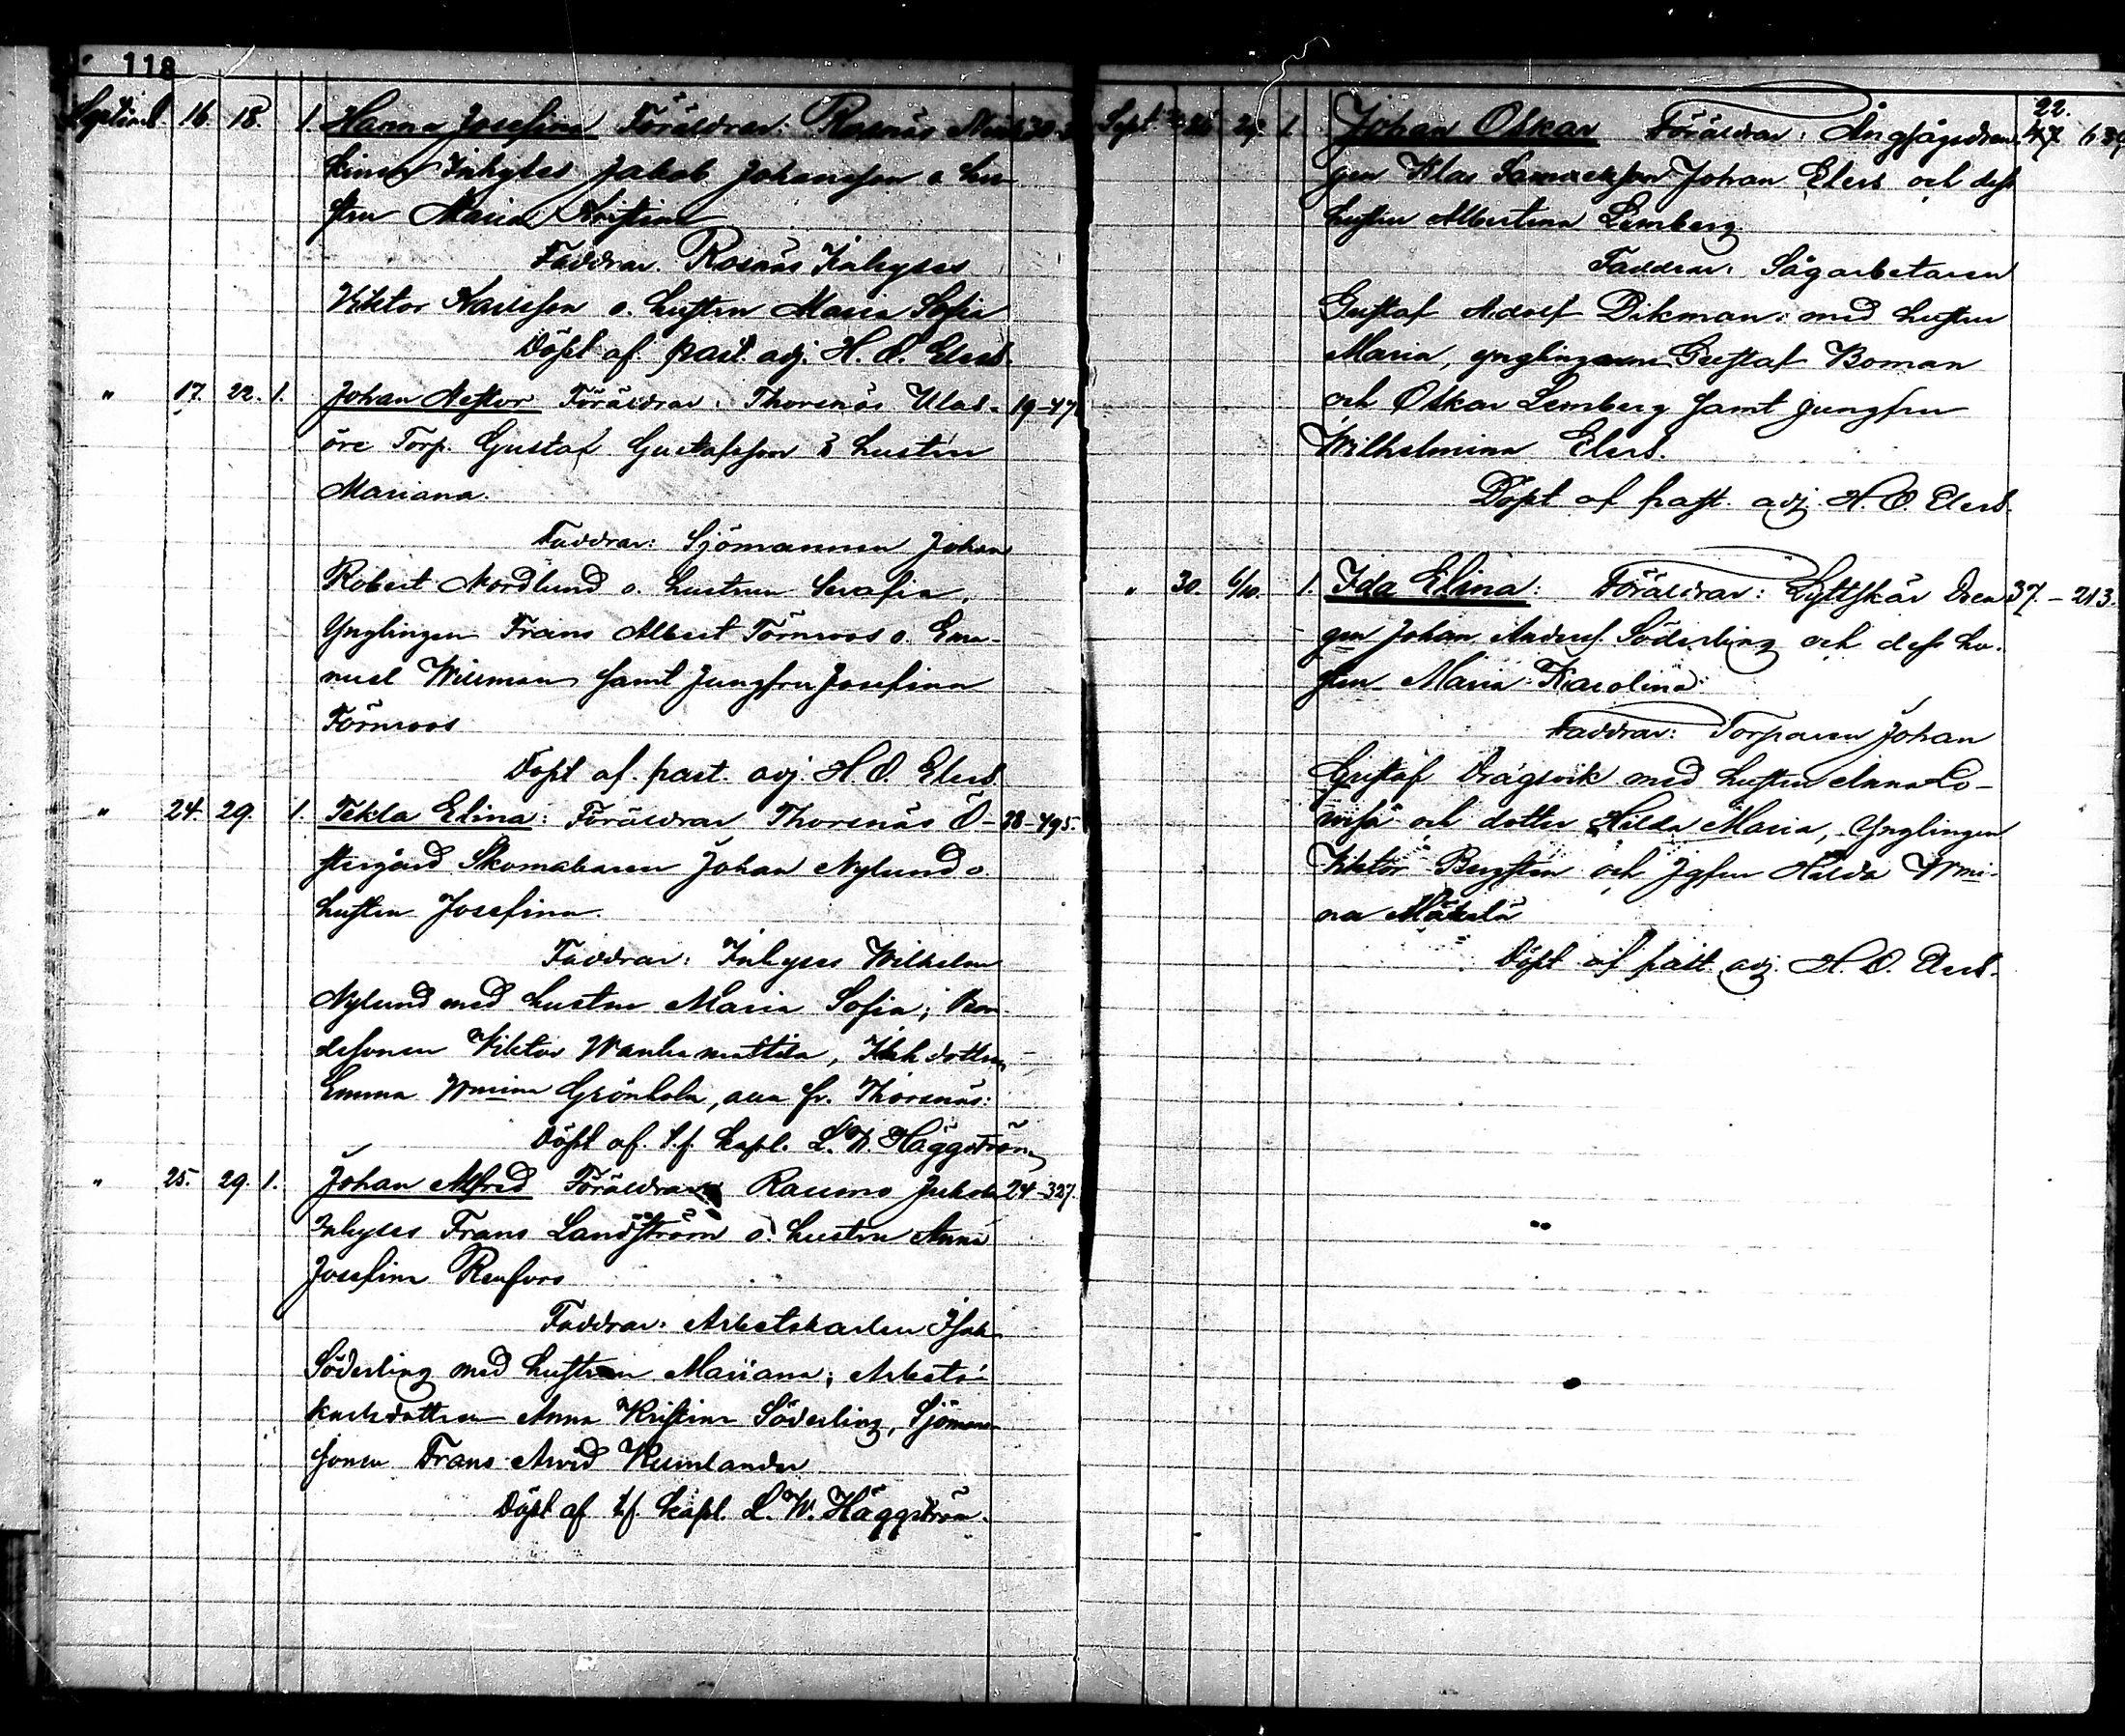 118
Septemb. 16. 18. 1. Hanna Josefina Föräldrar: Rosnäs
Inhyses Jakob Johansson o hu-
stru Maria Kristina
Faddrar. Rosnäs Inhyses
Viktor Karlsson o. hustru Maria Sofia
Döpt af past. adj. H. O. Elers.
" 17. 22. 1. Johan Nestor Föräldrar: Thorsnäs Ulas- 19-47
öre Torp. Gustaf Gustafsson o hustru
Mariana.
Faddrar: Sjömannen Johan
Robert Nordlund o. hustrun Serafia,
Ynglingen Frans Albert Törnroos o. Ema-
nuel Willman samt Jungfru Josefina
Törnroos
Döpt af. past. adj. H. O. Elers.
" 24. 29. 1. Tekla Elina: Föräldrar Thorsnäs Ö- 38-495.
stergård Skomakaren Johan Nylund o
hustru Josefina.
Faddrar: Inhyses Wilhelm
Nylund med hustru Maria Sofia; Bon-
desonen Viktor Wanhamattila, Inh dottren
Emma Wmina Grönholm, alla fr. Thorsnäs:
Döpt af. t.f. kapl. L. W. Häggström
" 25. 29. 1. Johan Alfred Föräldrar Raumo Juhola 24-327
Inhyses Frans Landström o. hustru Anna
Josefina Renfors
Faddrar: Arbetskarlen Isak
Söderling med hustrun Mariana; Arbets-
karlsdottren Anna Kristina Söderling, Sjömans-
sonen Frans Arvid
Döpt af t.f. kapl. L. W. Häggström.
Sept. 26 29. 1. Johan Oskar Föräldrar: Ångsågsdren- 22. 639
gen Klas Johan Elers och dess
hustru Albertina Lemberg.
Faddrar: Sågarbetaren
Gustaf Adolf Dikman med hustru
Maria, ynglingarne Gustaf Boman
och Oskar Lemberg samt jungfru
Wilhelmina Elers.
Döpt af past. adj. H. O. Elers.
" 30. 6/10. 1. Ida Elina: Föräldrar: Lyttskär Dren 37.-213.
gen Johan Anders. Söderling och dess hu-
stru Maria Karolina
Faddrar: Torparen Johan
Gustaf Dragsvik med hustru Anna Lo-
visa och dotter Hilda Maria, Ynglingen
Viktor Bergsten och Jgfru Hilda Wmi-
na Mäkelä
Döpt af past. adj. H. O. Elers.